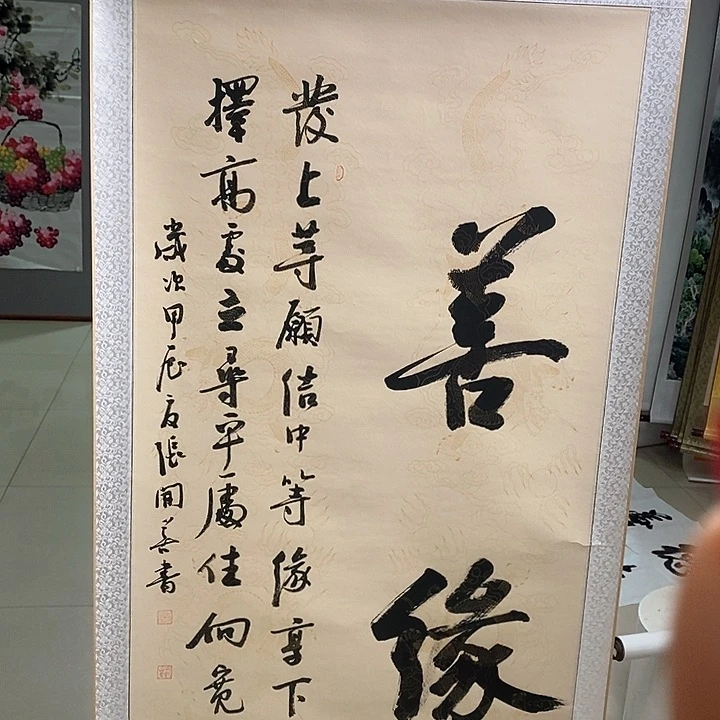 善缘
发上等愿结中等缘享下
择高处立寻平处住向宽
岁次甲辰夏张开善书